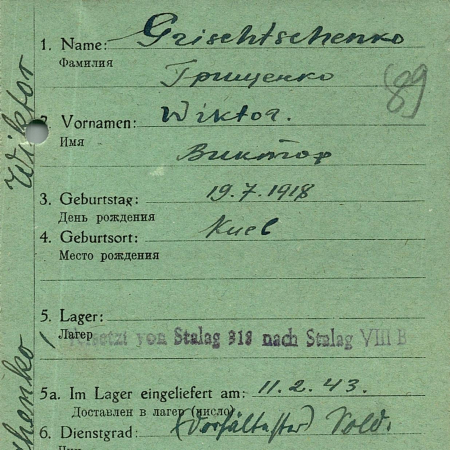 1. Name: Grischtschenko
Фамилия Грищенко
89
2. Vornamen: Wiktor.
Имя Виктор
3. Geburtstag: 19.7.1918
День рождения
4. Geburtsort: Киев
Место рождения
5. Lager:
Лагер
Versetzt von Stalag 318 nach Stalag VIII B
5a. Im Lager eingeliefert am: 11.2.43.
Доставлен в лагер (число)
6. Dienstgrad: Sold.
Чин
Wiktor